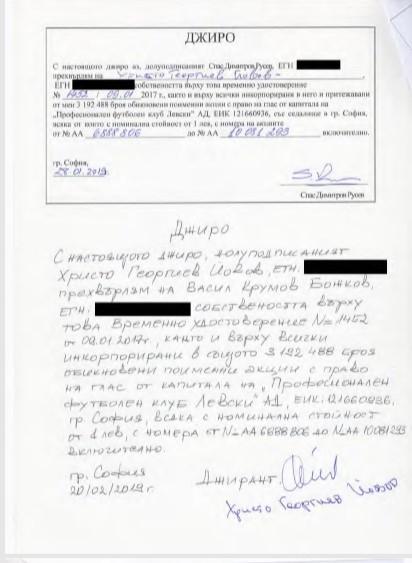 ДЖИРО
С настоящото джиро аз, долуподписаният Спас Димитров Русев, ЕГН
прехвърлям на Христо Георгиев Йовов
ЕГН собствеността върху това временно удостоверение
№ 1452 / 09.01 2017 г., както и върху всички инкорпорирани в него и притежавани
от мен 3 192 488 броя обикновени поименни акции с право на глас от капитала на
„Професионален футболен клуб Левски" АД, ЕИК 121660936, със седалище в гр. София,
всяка от които с номинална стойност от 1 лев, с номера на акциите
от № АА 6888806 до № АА 10081293 включително.
гр. София,
28.01.2019
Спас Димитров Русев
Джиро
С настоящото джиро, долуподписаният
Христо Георгиев Йовов, ЕГН.
прехвърлям на Васил Крумов Божков,
ЕГН. собствеността върху
това Временно удостоверение №1452
от 09.01.2017г., както и върху всички
инкорпорирани в същото 3 192 488 броя
обикновени поименни акции с право
на глас от капитала на „Професионален
футболен клуб Левски" АД, ЕИК: 121660936,
гр. София, всяка с номинална стойност
от 1 лев, с номера от №АА 6888806 до №АА 10081293
включително.
гр. София
20/02/2019г.
Джирант:
Христо Георгиев Йовов